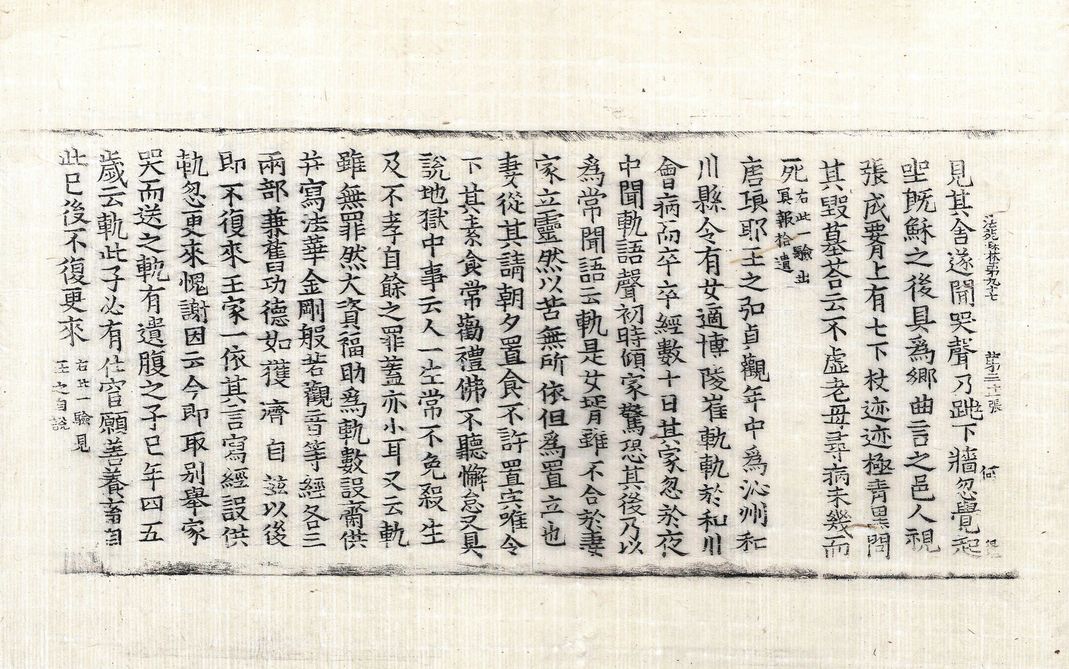 見其舍遂聞哭聲乃跳下牆忽覺起
坐既穌之後具爲鄉曲言之邑人視
張成要上有七下杖迹迹極青黑問
其毀墓荅云不虛老母尋病未幾而
死 右此一驗出冥報拾遺
唐瑯耶王之弘貞觀年中爲沁州和
川縣令有女適博陵崔軌軌於和川
會病而卒卒經數十日其家忽於夜
中聞軌語聲初時傾家驚恐其後乃以
爲常聞語云軌是女壻雖不合於妻
家立靈然以苦無所依但爲置立也
妻從其請朝夕置食不許置宍唯令
下其素食常勸禮佛不聽懈怠又具
說地獄中事云人一生常不免殺生
及不孝自餘之罪蓋亦小耳又云軌
雖無罪然大資福助爲軌數設齋供
并寫法華金剛般若觀音等經各三
兩部兼舊功德如獲濟自茲以後
即不復來王家一依其言寫經設供
軌忽更來愧謝因云今即取别舉家
哭而送之軌有遺腹之子已年四五
歲云軌此子必有仕宦願善養畜自
此已後不復更來 右此一驗見王之自說